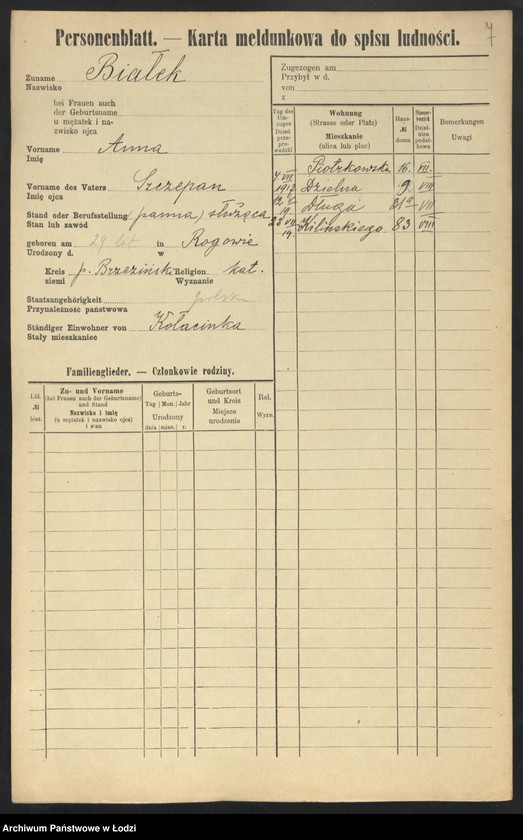 7
Personenblatt. — Karta meldunkowa do spisu ludności.
Zuname Białek
Nazwisko
bei Frauen auch
der Geburtsname
u mężatek i na-
zwisko ojca
Vorname Anna
Imię
Vorname des Vaters Szczepan
Imię ojca
Stand oder Berufsstellung (panna) służąca
Stan lub zawód
geboren am 29 lat in Rogowie
Urodzony d. w
Kreis p. Brzeziński Religion kat.
ziemi Wyznanie
Staatsangehörigkeit polsk
Przynależność państwowa
Ständiger Einwohner von Kołacinka
Stały mieszkaniec
Zugezogen am
Przybył w d.
von
z
Tag des Um-zuges Dzień prze-pro-wadzki
Wohnung (Strasse oder Platz) Mieszkanie (ulica lub plac)
Haus- № domu
Steuer-bezirk Dziel-nica podat-kowa
Bemerkungen Uwagi
Piotrkowska 16. VII.
4/VII 1918 Dzielna 9. VIII
Długa 81a VII
23/VII 19. Kilińskiego 83 VIII
Familienglieder. — Członkowie rodziny.
Lfd. № bież.
Zu- und Vorname (bei Frauen auch der Geburtsname) und Stand Nazwisko i imię (u mężatek i nazwisko ojca) i stan
Geburts- Tag Mon. Jahr Urodzony dnia mies. r.
Geburtsort und Kreis Miejsce urodzenia
Rel. Wyzn.
Archiwum Państwowe w Łodzi